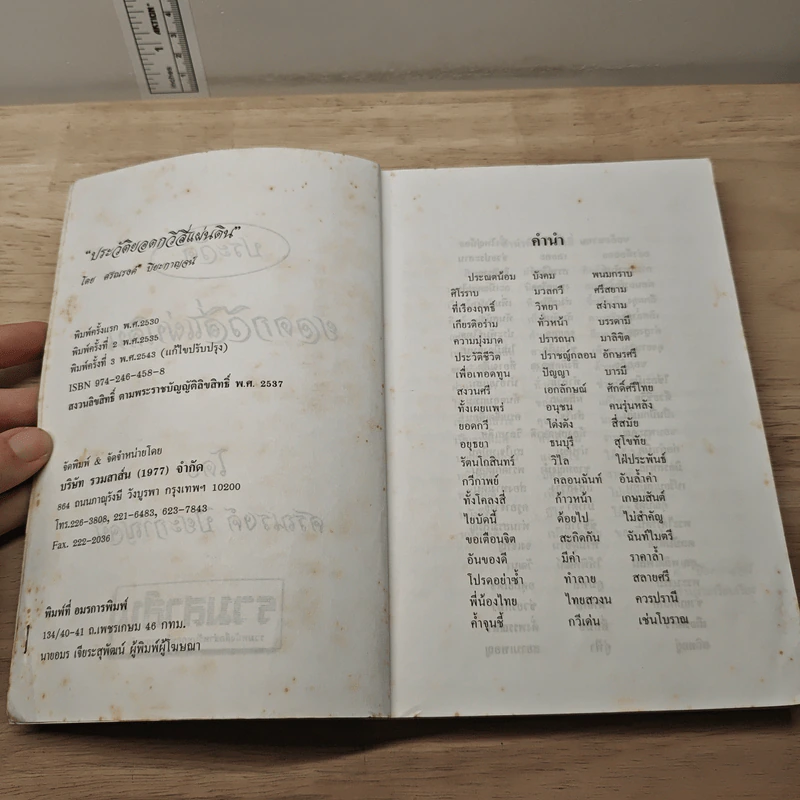 "ประวัติยอดกวีสี่แผ่นดิน"
โดย ศรณรงค์ ปิยะกาญจน์
พิมพ์ครั้งแรก พ.ศ.2530
พิมพ์ครั้งที่ 2 พ.ศ.2535
พิมพ์ครั้งที่ 3 พ.ศ.2543 (แก้ไขปรับปรุง)
ISBN 974-246-458-8
สงวนลิขสิทธิ์ ตามพระราชบัญญัติลิขสิทธิ์ พ.ศ. 2537
จัดพิมพ์ & จัดจำหน่ายโดย
บริษัท รวมสาส์น (1977) จำกัด
864 ถนนภาณุรังษี วังบูรพา กรุงเทพฯ 10200
โทร.226-3808, 221-6483, 623-7843
Fax. 222-2036
พิมพ์ที่ อมรการพิมพ์
134/40-41 ถ.เพชรเกษม 46 กทม.
นายอมร เจียระสุพัฒน์ ผู้พิมพ์ผู้โฆษณา
คำนำ
ประณตน้อม บังคม พนมกราบ
ศิโรราบ มวลกวี ศรีสยาม
ที่เรืองฤทธิ์ วิทยา สง่างาม
เกียรติอร่าม ทั่วหน้า บรรดามี
ความมุ่งมาด ปรารถนา มาลิขิต
ประวัติชีวิต ปราชญ์กลอน อักษรศรี
เพื่อเทอดทูน ปัญญา บารมี
สงวนศรี เอกลักษณ์ ศักดิ์ศรีไทย
ทั้งเผยแพร่ อนุชน คนรุ่นหลัง
ยอดกวี โด่งดัง สี่สมัย
อยุธยา ธนบุรี สุโขทัย
รัตนโกสินทร์ วิไล ใฝ่ประพันธ์
กวีกาพย์ กลอนฉันท์ อันล้ำค่า
ทั้งโคลงสี่ ก้าวหน้า เกษมสันต์
ไยบัดนี้ ด้อยไป ไม่สำคัญ
ขอเตือนจิต สะกิดกัน ฉันท์ไมตรี
อันของดี มีค่า ราคาล้ำ
โปรดอย่าซ้ำ ทำลาย สลายศรี
พี่น้องไทย ไทยสงวน ควรปรานี
ค้ำจุนชี้ กวีเด่น เช่นโบราณ